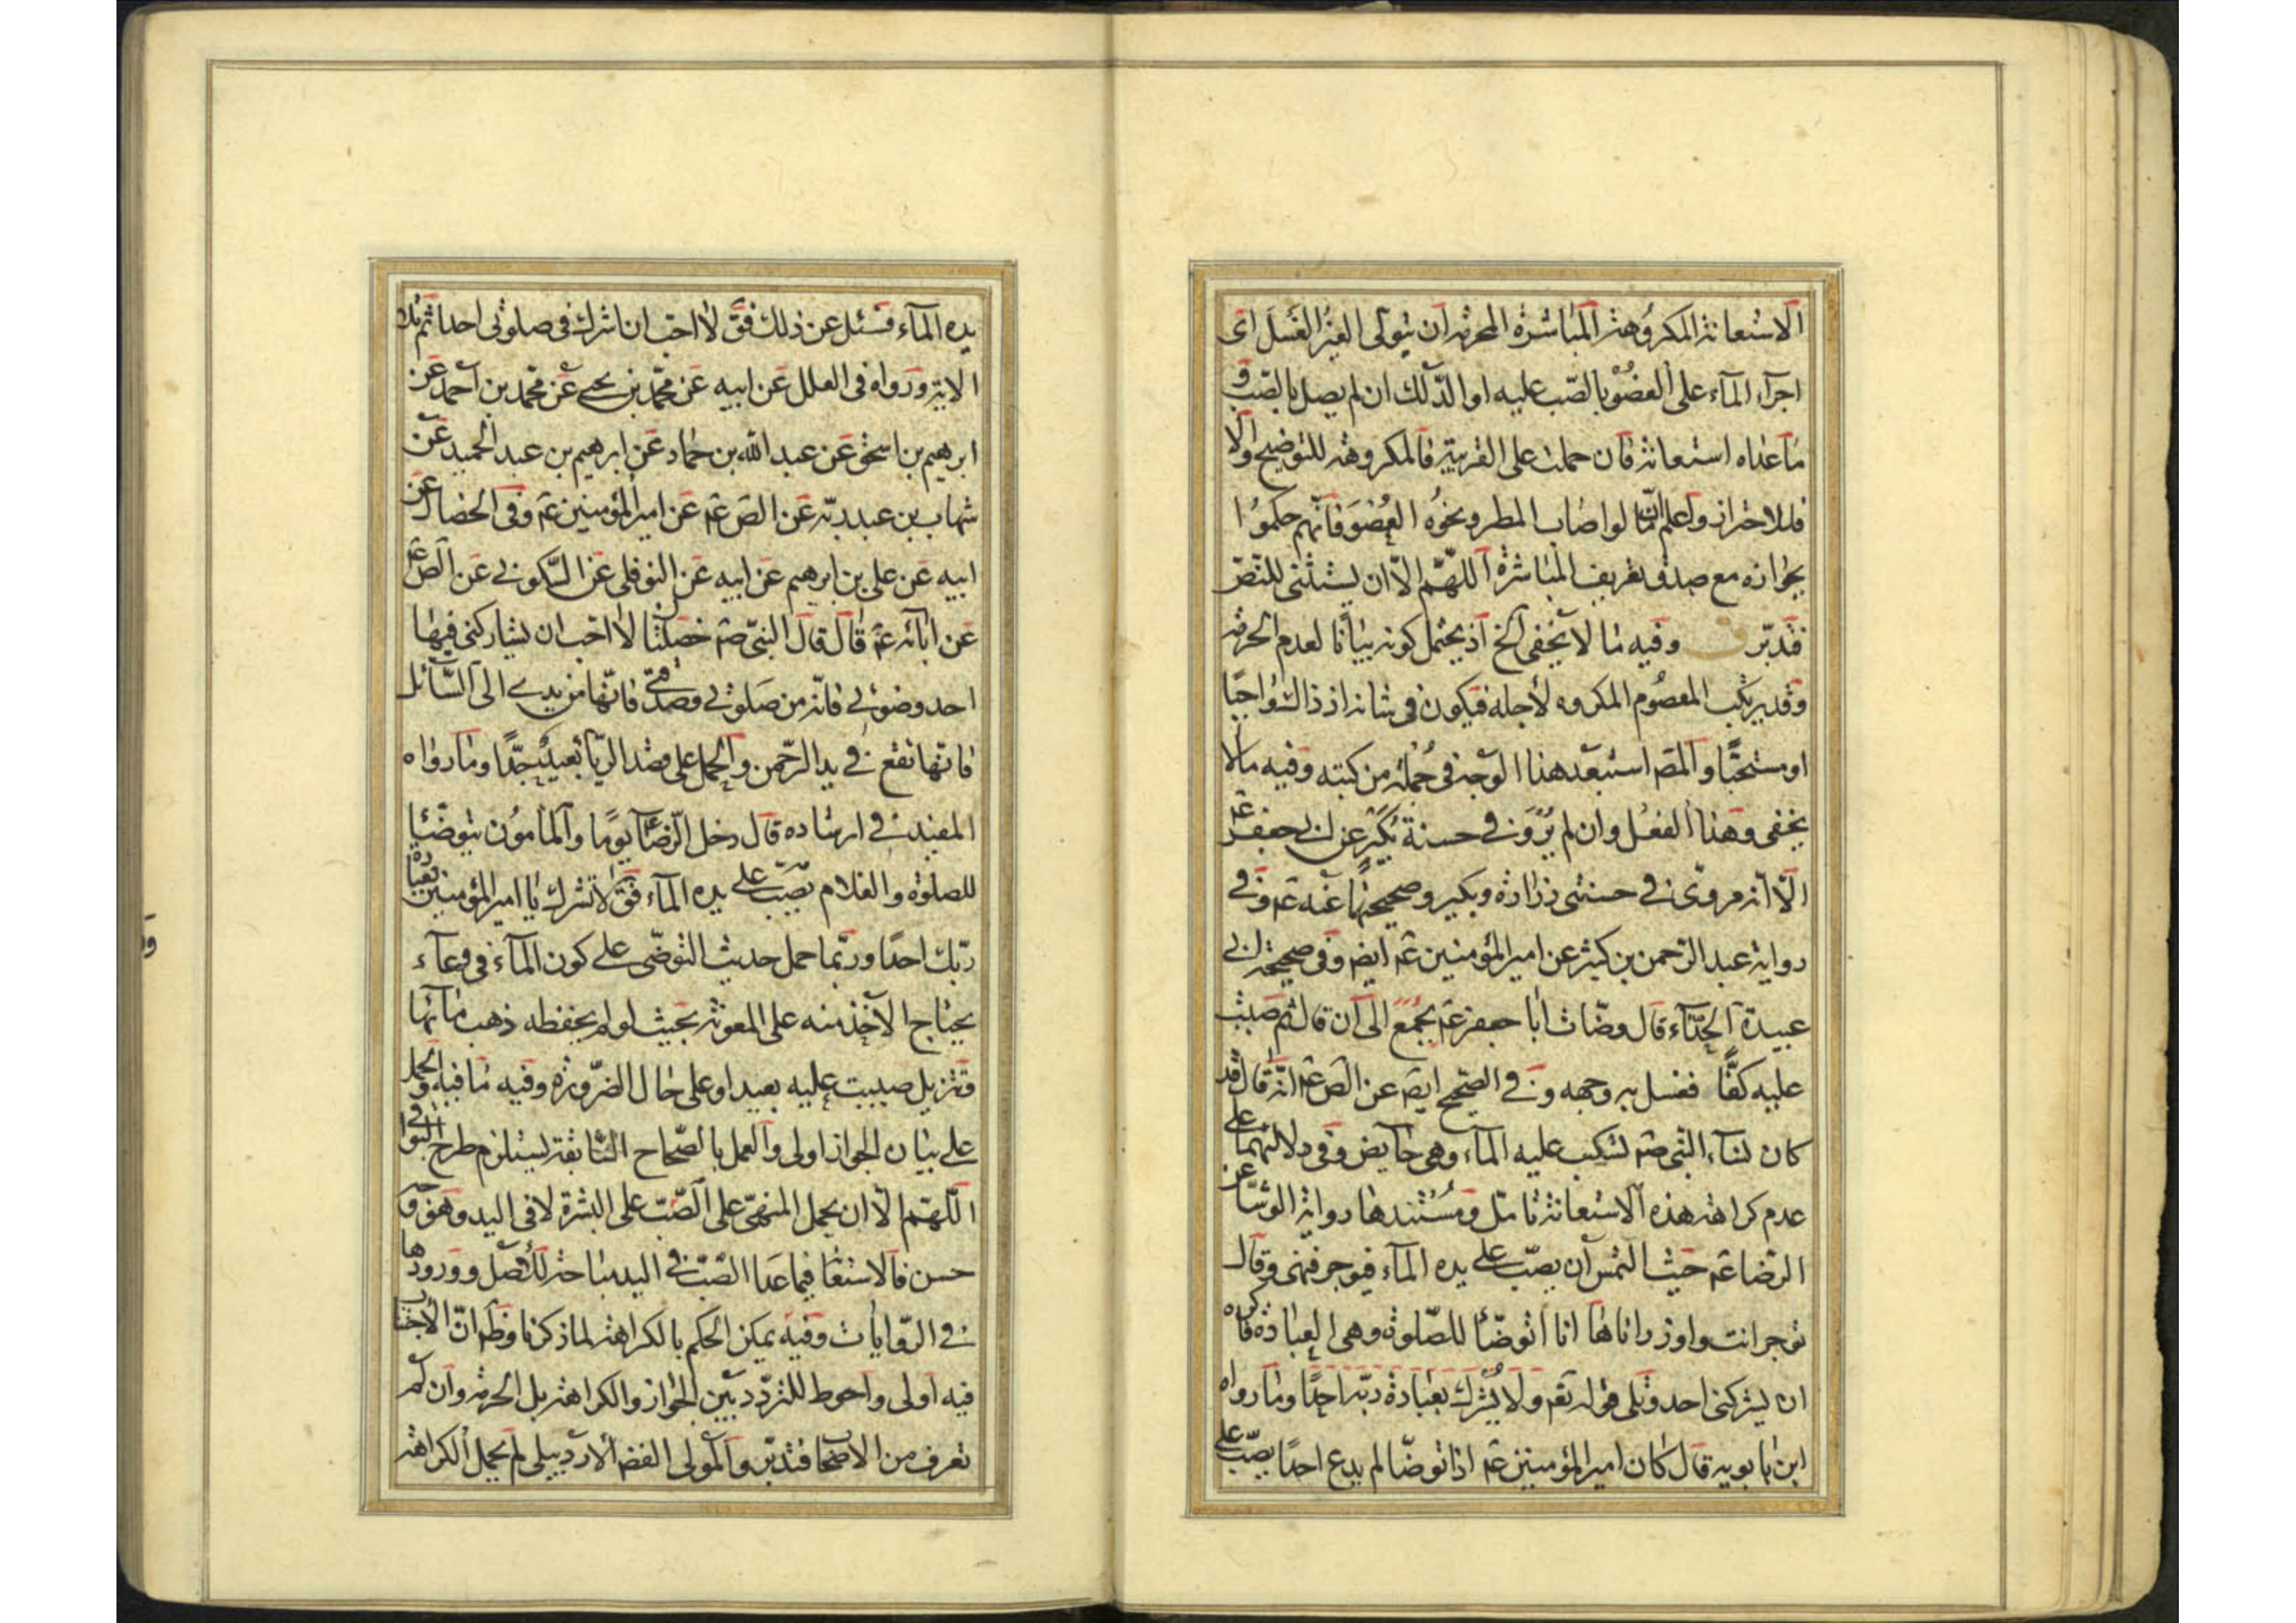 الاستعانة المكروهة المباشرة المحرمة ان يتولى الغير الغسل اى
اجراء الماء على العضو بالصب عليه او الدلك ان لم يصل بالصب و
ما عداه استعانة فان حملت على القريبة فالمكروهة للتوضيح والا
فللاحتراز واعلم انّا لو اصاب المطر ونحوه العضو فانهم حكموا
بجوازه مع صدق تعريف المباشرة اللهم الا ان يستثنى للنص
فتدبر ق وفيه ما لا يخفى الخ اذ يحتمل كونه بيانا لعدم الحرمة
وقد يرتكب المعصوم المكروه لأجله فيكون فى شانه اذ ذاك واجبًا
او مستحبًّا والمصـ استبعد هذا الوجه فى جملة من كتبه وفيه ما لا
يخفى وهذا الفعل وان لم يُرْوَ فى حسنة بكير عن ابى جعفر عـ
الّا انه مروى فى حسنتى زرارة وبكير وصحيحتهما عنه عـ وفى
رواية عبد الرحمن بن كثير عن امير المؤمنين عـ ايضـ وفى صحيحة ابى
عبيدة الحذّاء قال وضّات ابا جعفر عـ بجمع الى ان قال ثم صببت
عليه كفًّا فغسل به وجهه وفى الصحيح ايضـ عن الصـ عـ انه قال قد
كان نساء النبى صـ تسكب عليه الماء وهى حايض وفى دلالتهما على
عدم كراهة هذه الاستعانة تامّل ومستندها رواية الوشّا عن
الرضا عـ حيث التمس ان يصبّ على يده الماء فيوجر فنهى وقال
توجر انت واوزر انا ها انا اتوضّأ للصّلوة وهى العبادة فاكره
ان يشركنى احد وتلى قوله تعـ ولا يُشرك بعبادة ربّه احدًا وما رواه
ابن بابويه قال كان امير المؤمنين عـ اذا توضّا لم يدع احدًا يصبّ على
يده الماء فسئل عن ذلك فقـ لا احب ان اشرك فى صلوتى احدا ثم تلا
الاية ورواه فى العلل عن ابيه عن محمّد بن يحيى عن محمّد بن احمد عن
ابرهيم بن اسحق عن عبد الله بن حماد عن ابرهيم بن عبد الحميد عن
شهاب بن عبد ربّه عن الصـ عـ عن امير المؤمنين عـ وفى الخصال عن
ابيه عن على بن ابرهيم عن ابيه عن النوفلى عن السّكونى عن الصـ عـ
عن ابائه عـ قال قال النبىّ صـ خصلتان لا احب ان يشاركنى فيها
احد وضوئى فانه من صلوتى وصدقتى فانّها من يدى الى السّائل
فانّها تقع فى يد الرّحمن والحمل على قصد الريّا بعيد جدًّا وما رواه
المفيد فى ارشاده قال دخل الرّضا عـ يومًا والمأمون يتوضّئا
للصلوة والغلام يصبّ على يده الماء فقـ لا تشرك يا امير المؤمنين بعبادة
ربّك احدًا وربّما حمل حديث التوضّى على كون الماء فى وعاء
يحتاج الاخذ منه على المعونة بحيث لو لم يحفظه ذهب ماؤها
وتنزيل صببت عليه بعيد او على حال الضّرورة وفيه ما فيه والحمل
على بيان الجواز اولى والعمل بالصّحاح السّابقة يستلزم طرح البواقى
اللّهم الّا ان يحمل المنهىّ على الصّبّ على البشرة لا فى اليد وهو وجه
حسن فالاستعا فيما عدا الصّبّ فى اليد مباحة للاصل وورودها
فى الروايات وفيه يمكن الحكم بالكراهة لما ذكرنا وظـ انّ الاجتناب
فيه اولى واحوط للتردّد بين الجواز والكراهة بل الحرمة وان لم
تعرف من الاصحاب فتدبّر والمولى الفضـ الاردبيلى لم يحمل الكراهة